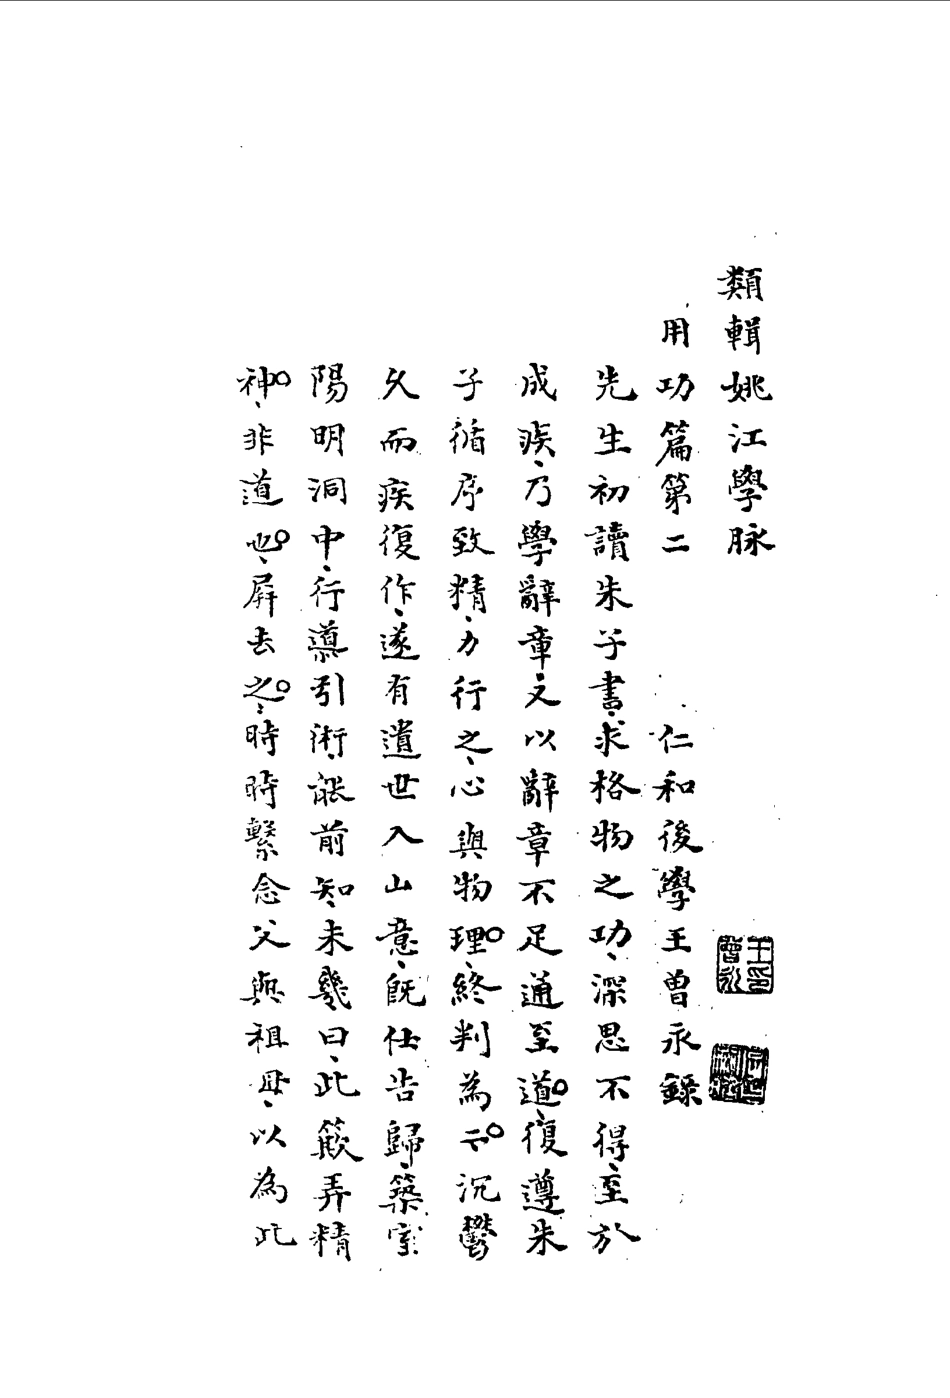 類輯姚江學脉
用功篇第二　仁和後學王曾永錄
先生初讀朱子書、求格物之功、深思不得、至於
成疾、乃學辭章、又以辭章不足通至道、復遵朱
子循序致精、力行之、心與物理、終判為二、沉鬱
久而疾復作、遂有遺世入山意、既仕告歸、築室
陽明洞中、行導引術、能前知、未幾曰、此簸弄精
神、非道也、屏去之、時時繫念父與祖母、以為此
王曾永印